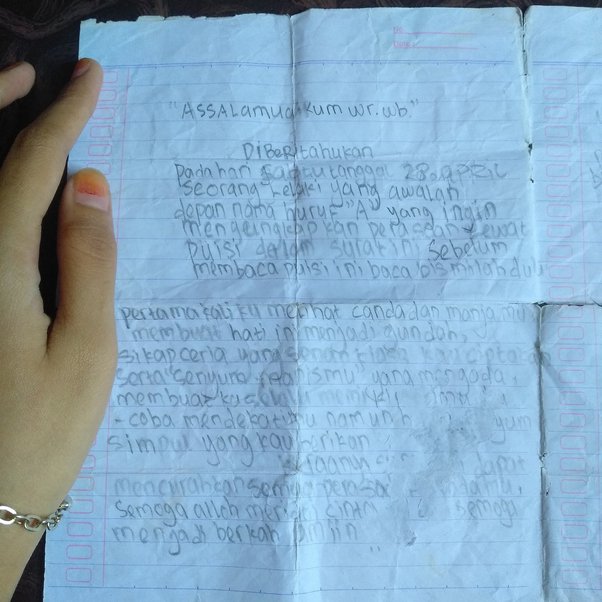 No
Date
"ASSALamualaikum wr. wb."
DiBeritahukan
Pada hari Sabtu tanggal 28 april
seorang lelaki yang awalan
depan nama huruf "A" yang ingin
mengungkapkan perasaan lewat
puisi dalam surat ini. Sebelum
membaca puisi ini baca bismilah dulu
pertama kali ku melihat canda dan manja mu
membuat hati ini menjadi gundah,
sikap ceria yang kau ciptakan
serta "senyum manismu" yang menggoda,
membuat ku selalu
-coba mendekatimu namun
simpul yang kau berikan
dapat
mencurahkan semua
Semoga allah cinta semoga
menjadi berkah amiin
"